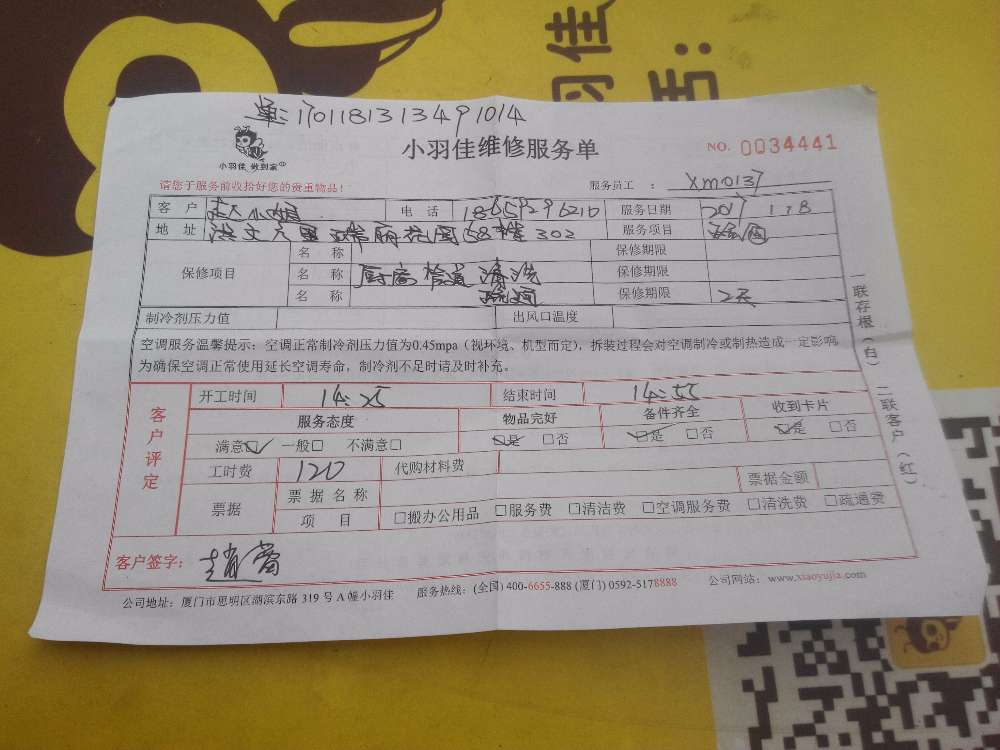 羽佳
话：
单：1701181313491014
小羽佳 做到家
小羽佳维修服务单
NO. 0034441
请您于服务前收拾好您的贵重物品！
服务员工 ： XM0137
客 户 赵小姐 电 话 18659296210 服务日期 2017 1 18
地 址 洪文六里 丽花园58幢302 服务项目 疏通
保修项目 名 称 保修期限
名 称 厨房 管道 清洗 保修期限
名 称 疏通 保修期限 2天
制冷剂压力值 出风口温度
空调服务温馨提示：空调正常制冷剂压力值为0.45mpa（视环境、机型而定），拆装过程会对空调制冷或制热造成一定影响
为确保空调正常使用延长空调寿命，制冷剂不足时请及时补充。
客户评定
开工时间 14:25 结束时间 14:55
服务态度 物品完好 备件齐全 收到卡片
满意☑ 一般□ 不满意□ ☑是 □否 ☑是 □否 ☑是 □否
工时费 120 代购材料费
票据 票据名称 票据金额
项 目 □搬办公用品 □服务费 □清洁费 □空调服务费 □清洗费 □疏通费
客户签字：
公司地址：厦门市思明区湖滨东路 319 号 A 幢小羽佳 服务热线：(全国) 400-6655-888 (厦门) 0592-5178888 公司网站：www.xiaoyujia.com
一联存根（白） 二联客户（红）